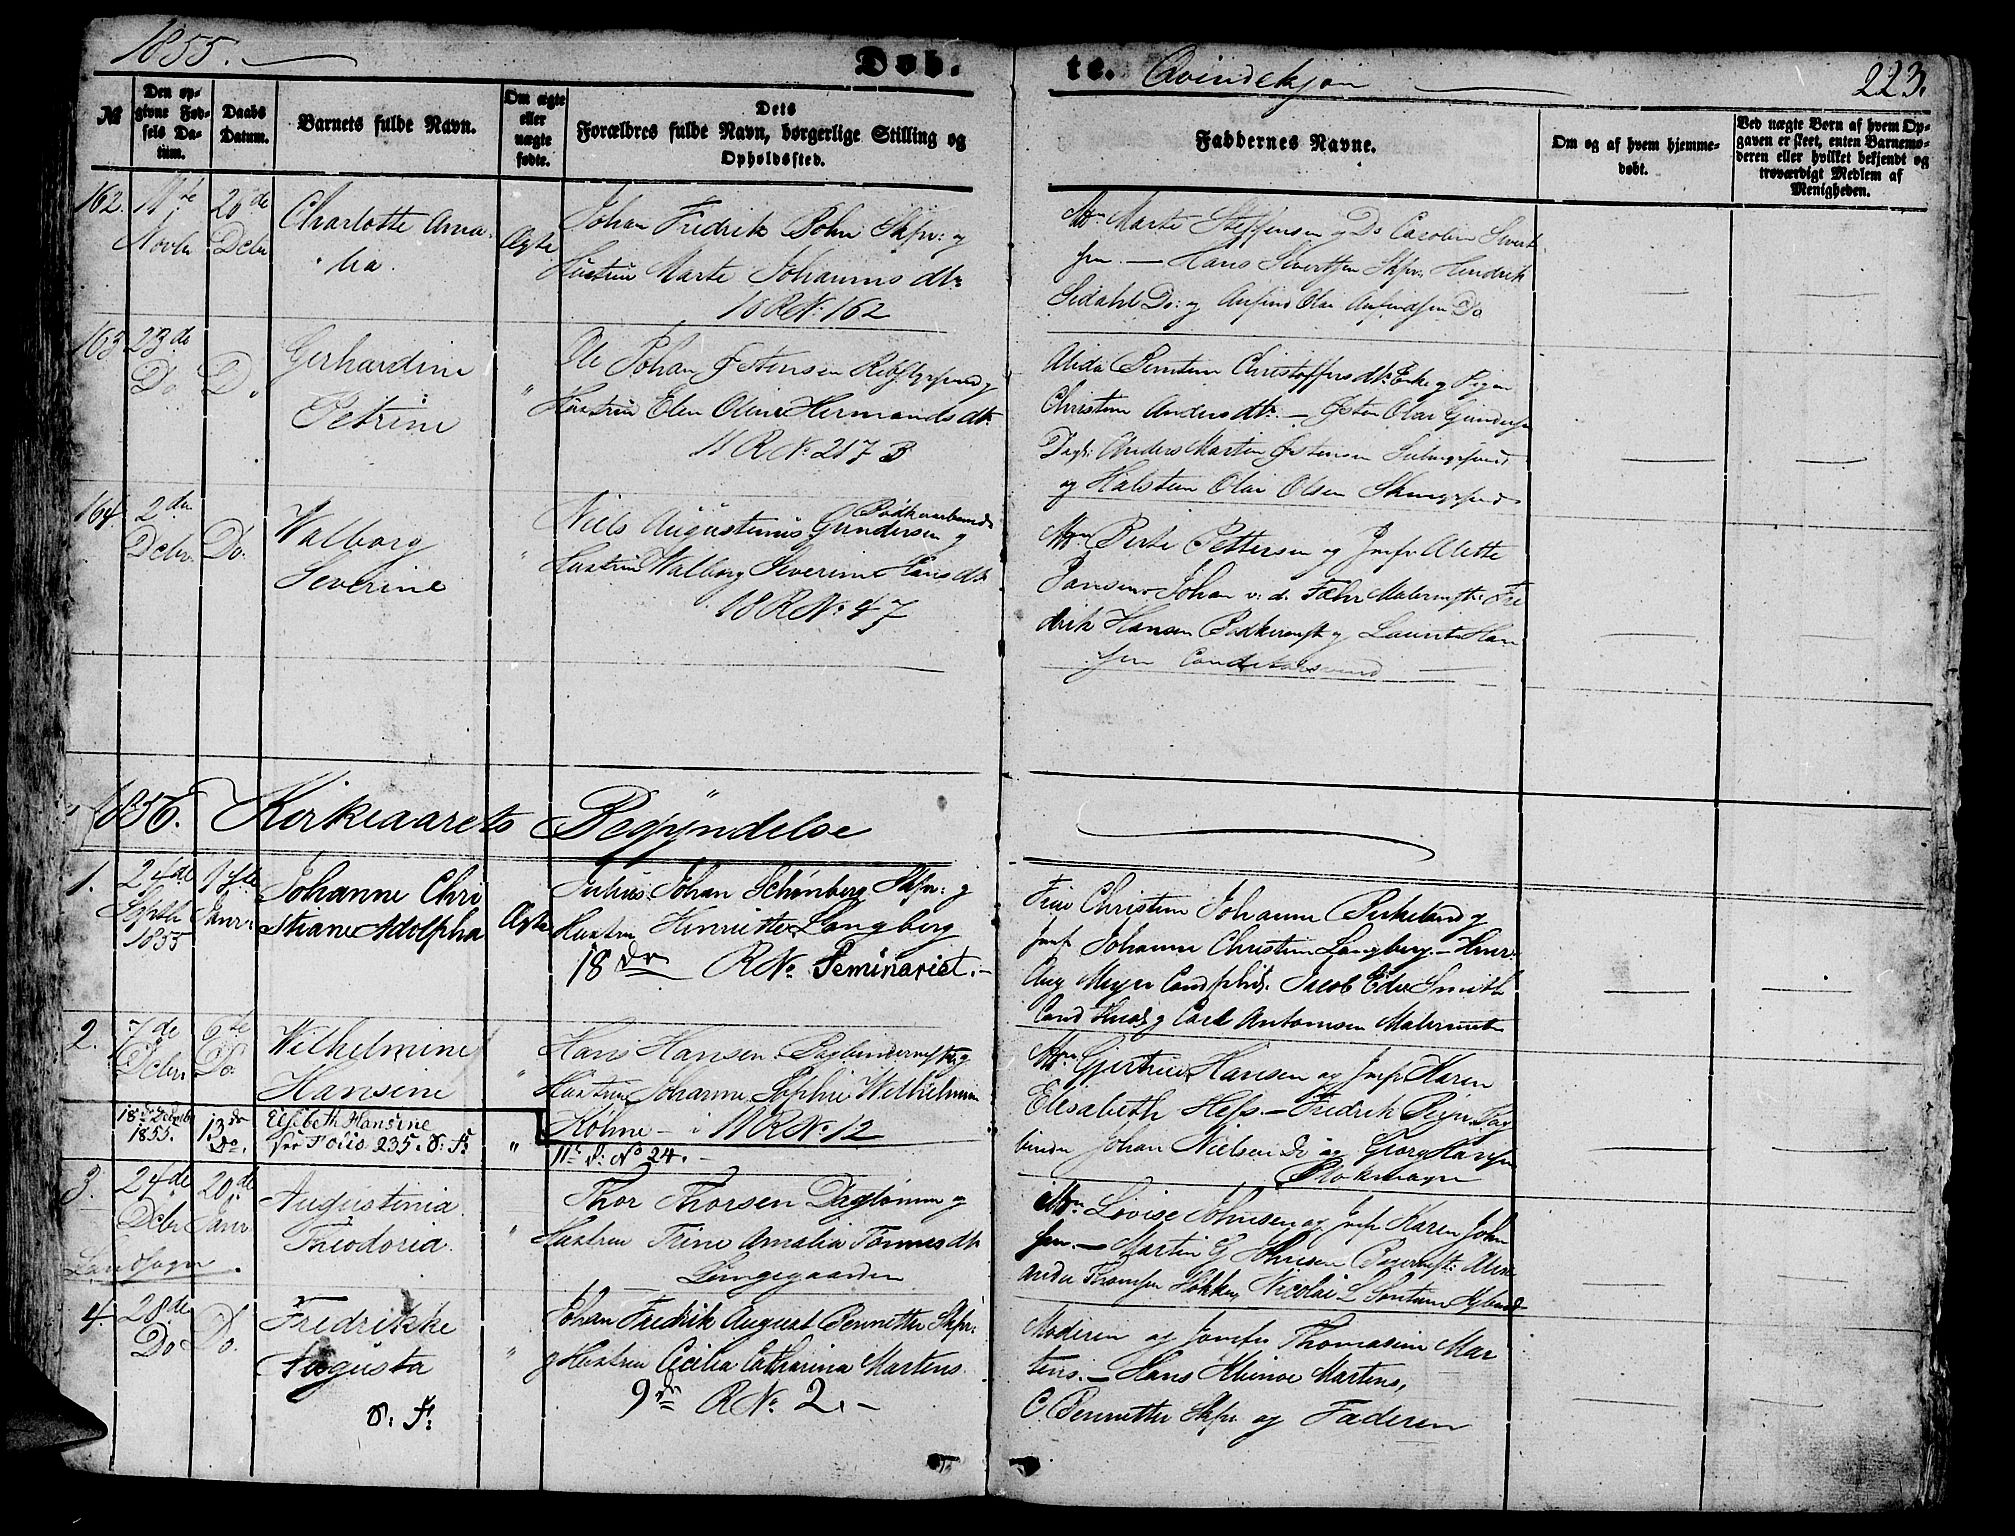 1855.
Døb.
te.
Qvindekjøn
223.
№
Den op-
givne Fød-
sels Da-
tum.
Daabs
Datum.
Barnets fulde Navn.
Om ægte
eller
uægte
fødte.
Dets
Forældres fulde Navn, borgerlige Stilling og
Opholdssted.
Faddernes Navne.
Om og af hvem hjemme-
døbt.
Ved uægte Børn af hvem Op-
gaven er skeet, enten Barnemo-
deren eller hvilket bekjendt og
troværdigt Medlem af
Menigheden.
162.
11te
Novbr
26de
Decbr
Charlotte Ama-
lia.
Ægte
Johan Fredrik Bohn Skpr: og
Hustru Marte Johannesdtr
10 R No. 162
Mm Marte Steffensen og Do Caroline Sivert
sen. — Hans Sivertsen Skpr. Hendrik
Do: og Olai Do
163
23de
Do
Do
Gerhardine
Petrine
"
Ole Johan Østensen og
Hustru Elen Oline Hermandsdtr
11 R No 217 B
Alida Christoffersdtr Enke og Pigen
Christine Andersdtr. — Østen Olai Gundersen
Dagl: Anders Martin Østensen
og Halsten Olai Olsen
164.
2den
Decbr.
Do.
Walborg
Severine
"
Bødkerarbeid
Niels Augustinus Gundersen og
Hustru Walborg Severine Hansdtr
18 R No. 47
Mm Berte Pettersen og Jmfr Alette
Jansen. Johan v. d. Fæhr Malermstr: Fre
drik Hansen Bødkermstr og Laurits Han
sen Conditorsvend
1856. Kirkeaarets Begyndelse
1.
24de
Septbr
1855
Janr
Johanne Chri
stiane Adolpha
Ægte
Julius Johan Schønberg Skpr: og
Hustru Henriette Langberg
18de R No. Seminariet. —
Frue Christine Johanne Birkeland og
Jmfr Johanne Christine Langberg. — Henr.
Aug Meyer Cand philos. Jacob Edv Smith
Cand theol og Carl Antonsen Malermstr
2.
7de
Decbr
6te
Do.
Wilhelmine
Hansine
"
Hans Hansen Bogbindermstr og
Hustru Johanne Sophie Wilhelmine
Køhne — 11 R No. 12
Mm Gjertrud Hansen og Jmfr Karen
Elisabeth Hess — Fredrik Beyer Bog
binder Johan Nielsen Do og Georg Hansen
Blokmager
18de Decbr
1855.
13de
Do.
Elsebeth Hansine
See Folio 235. d: F:
"
11te d: No 24. —
3.
24de
Decbr
20de
Janr
Landsogn
Augustinia
Theodoria.
"
Thor Thorsen Dagløner og
Hustru Trine Amalia Tønnesdtr
Lungegaarden
Mm Lovise Johnsen og Jmfr Karen John
sen. — Martin G Johnsen Bagermstr: Alex
ander Thomsen Høkker, Nicolai L Sontum
4.
28de
Do
Do.
Fredrikke
Augusta
d: F:
"
Johan Fredrik August Bennetter Skpr:
og Hustru Cecilia Catharina Martens.
9de R No. 2. —
Moderen og Jomfr Thomasine Mar
tens. — Hans Martens,
C. Bennetter Skpr og Faderen